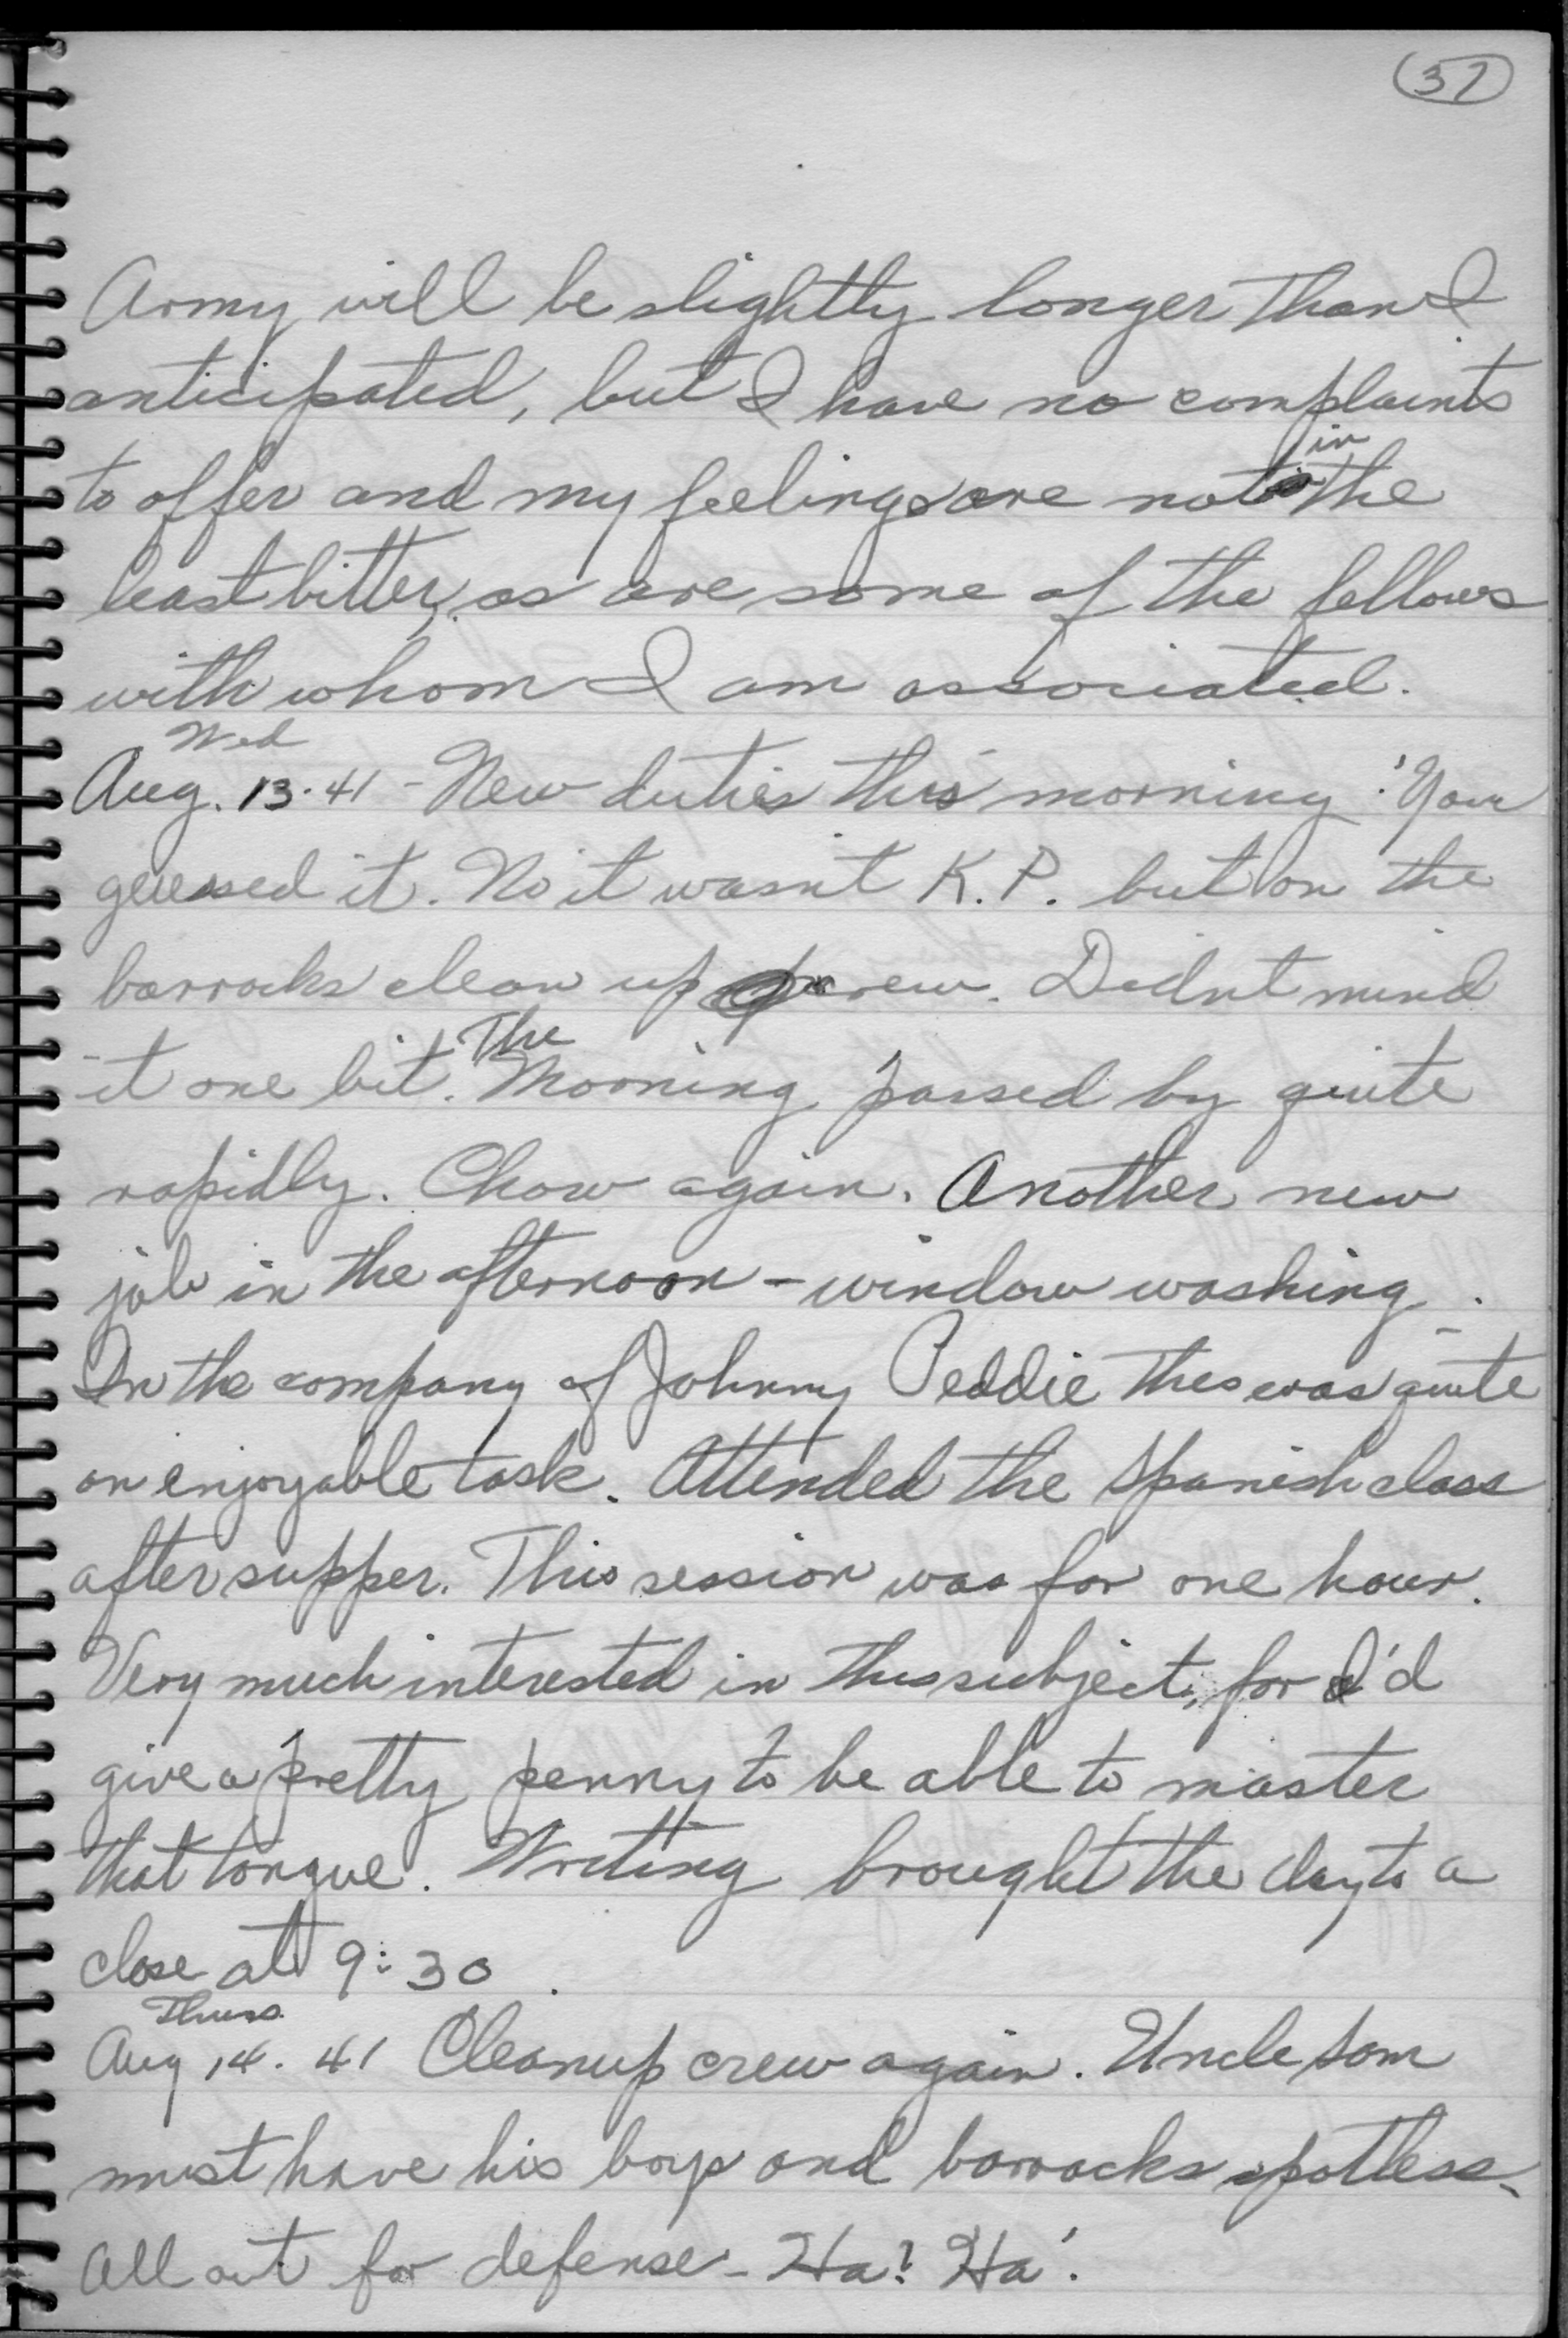 37
Army will be slightly longer than I
anticipated, but I have no complaints
in
to offer and my feelings are not the
least bitter, as are some of the fellows
with whom I am associated.
Wed
Aug. 13. 41 - New duties this morning. You
guessed it. No it wasn't K.P. but on the
barracks clean up crew. Didn't mind
The
it one bit. Morning passed by quite
rapidly. Chow again. Another new
job in the afternoon - window washing.
In the company of Johnny Peddie this was quite
an enjoyable task. Attended the Spanish class
after supper. This session was for one hour.
Very much interested in this subject, for I'd
give a pretty penny to be able to master
that tongue. Writing brought the day to a
close at 9:30.
Thurs.
Aug 14. 41 Cleanup crew again. Uncle Sam
must have his boys and barracks spotless.
All out for defense - Ha! Ha!